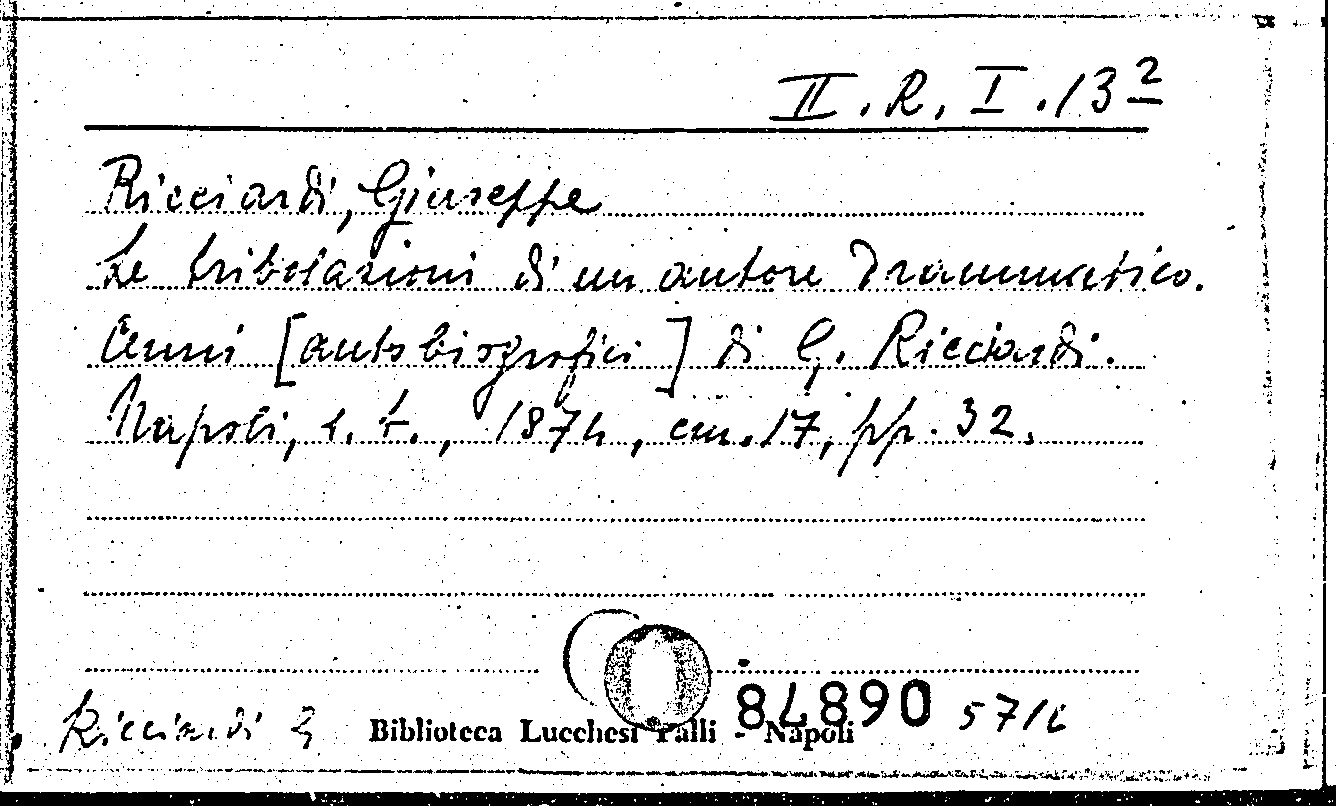 II. R. I. 13²
Ricciardi, Giuseppe
Le tribolazioni di un autore drammatico.
Cenni [autobiografici] di G. Ricciardi.
Napoli, s. t., 1874, cm. 17, pp. 32.
Ricciardi G
Biblioteca Lucchesi Palli - Napoli
84890